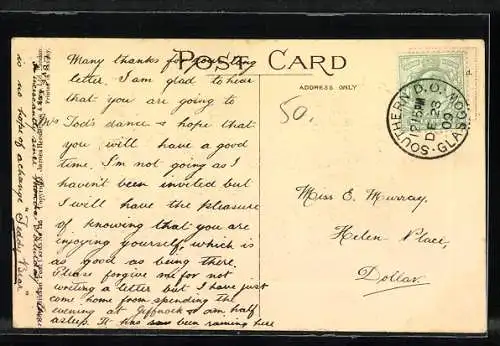 POST CARD
ADDRESS ONLY
Many thanks for your long
letter. I am glad to hear
that you are going to
Mrs Tod's dance & hope that
you will have a good
time. I'm not going as I
haven't been invited but
I will have the pleasure
of knowing that you are
enjoying yourself, which is
as good as being there.
Please forgive me for not
writing a letter but I have just
come home from spending the
evening at Giffnock & am half
asleep. It has been raining here
is no hope of a change "Teddy Bear"
50.
SOUTHERN D.O. GLASGOW
12 15PM
DE 23
09
Miss E. Murray,
Helen Place,
Dollar.